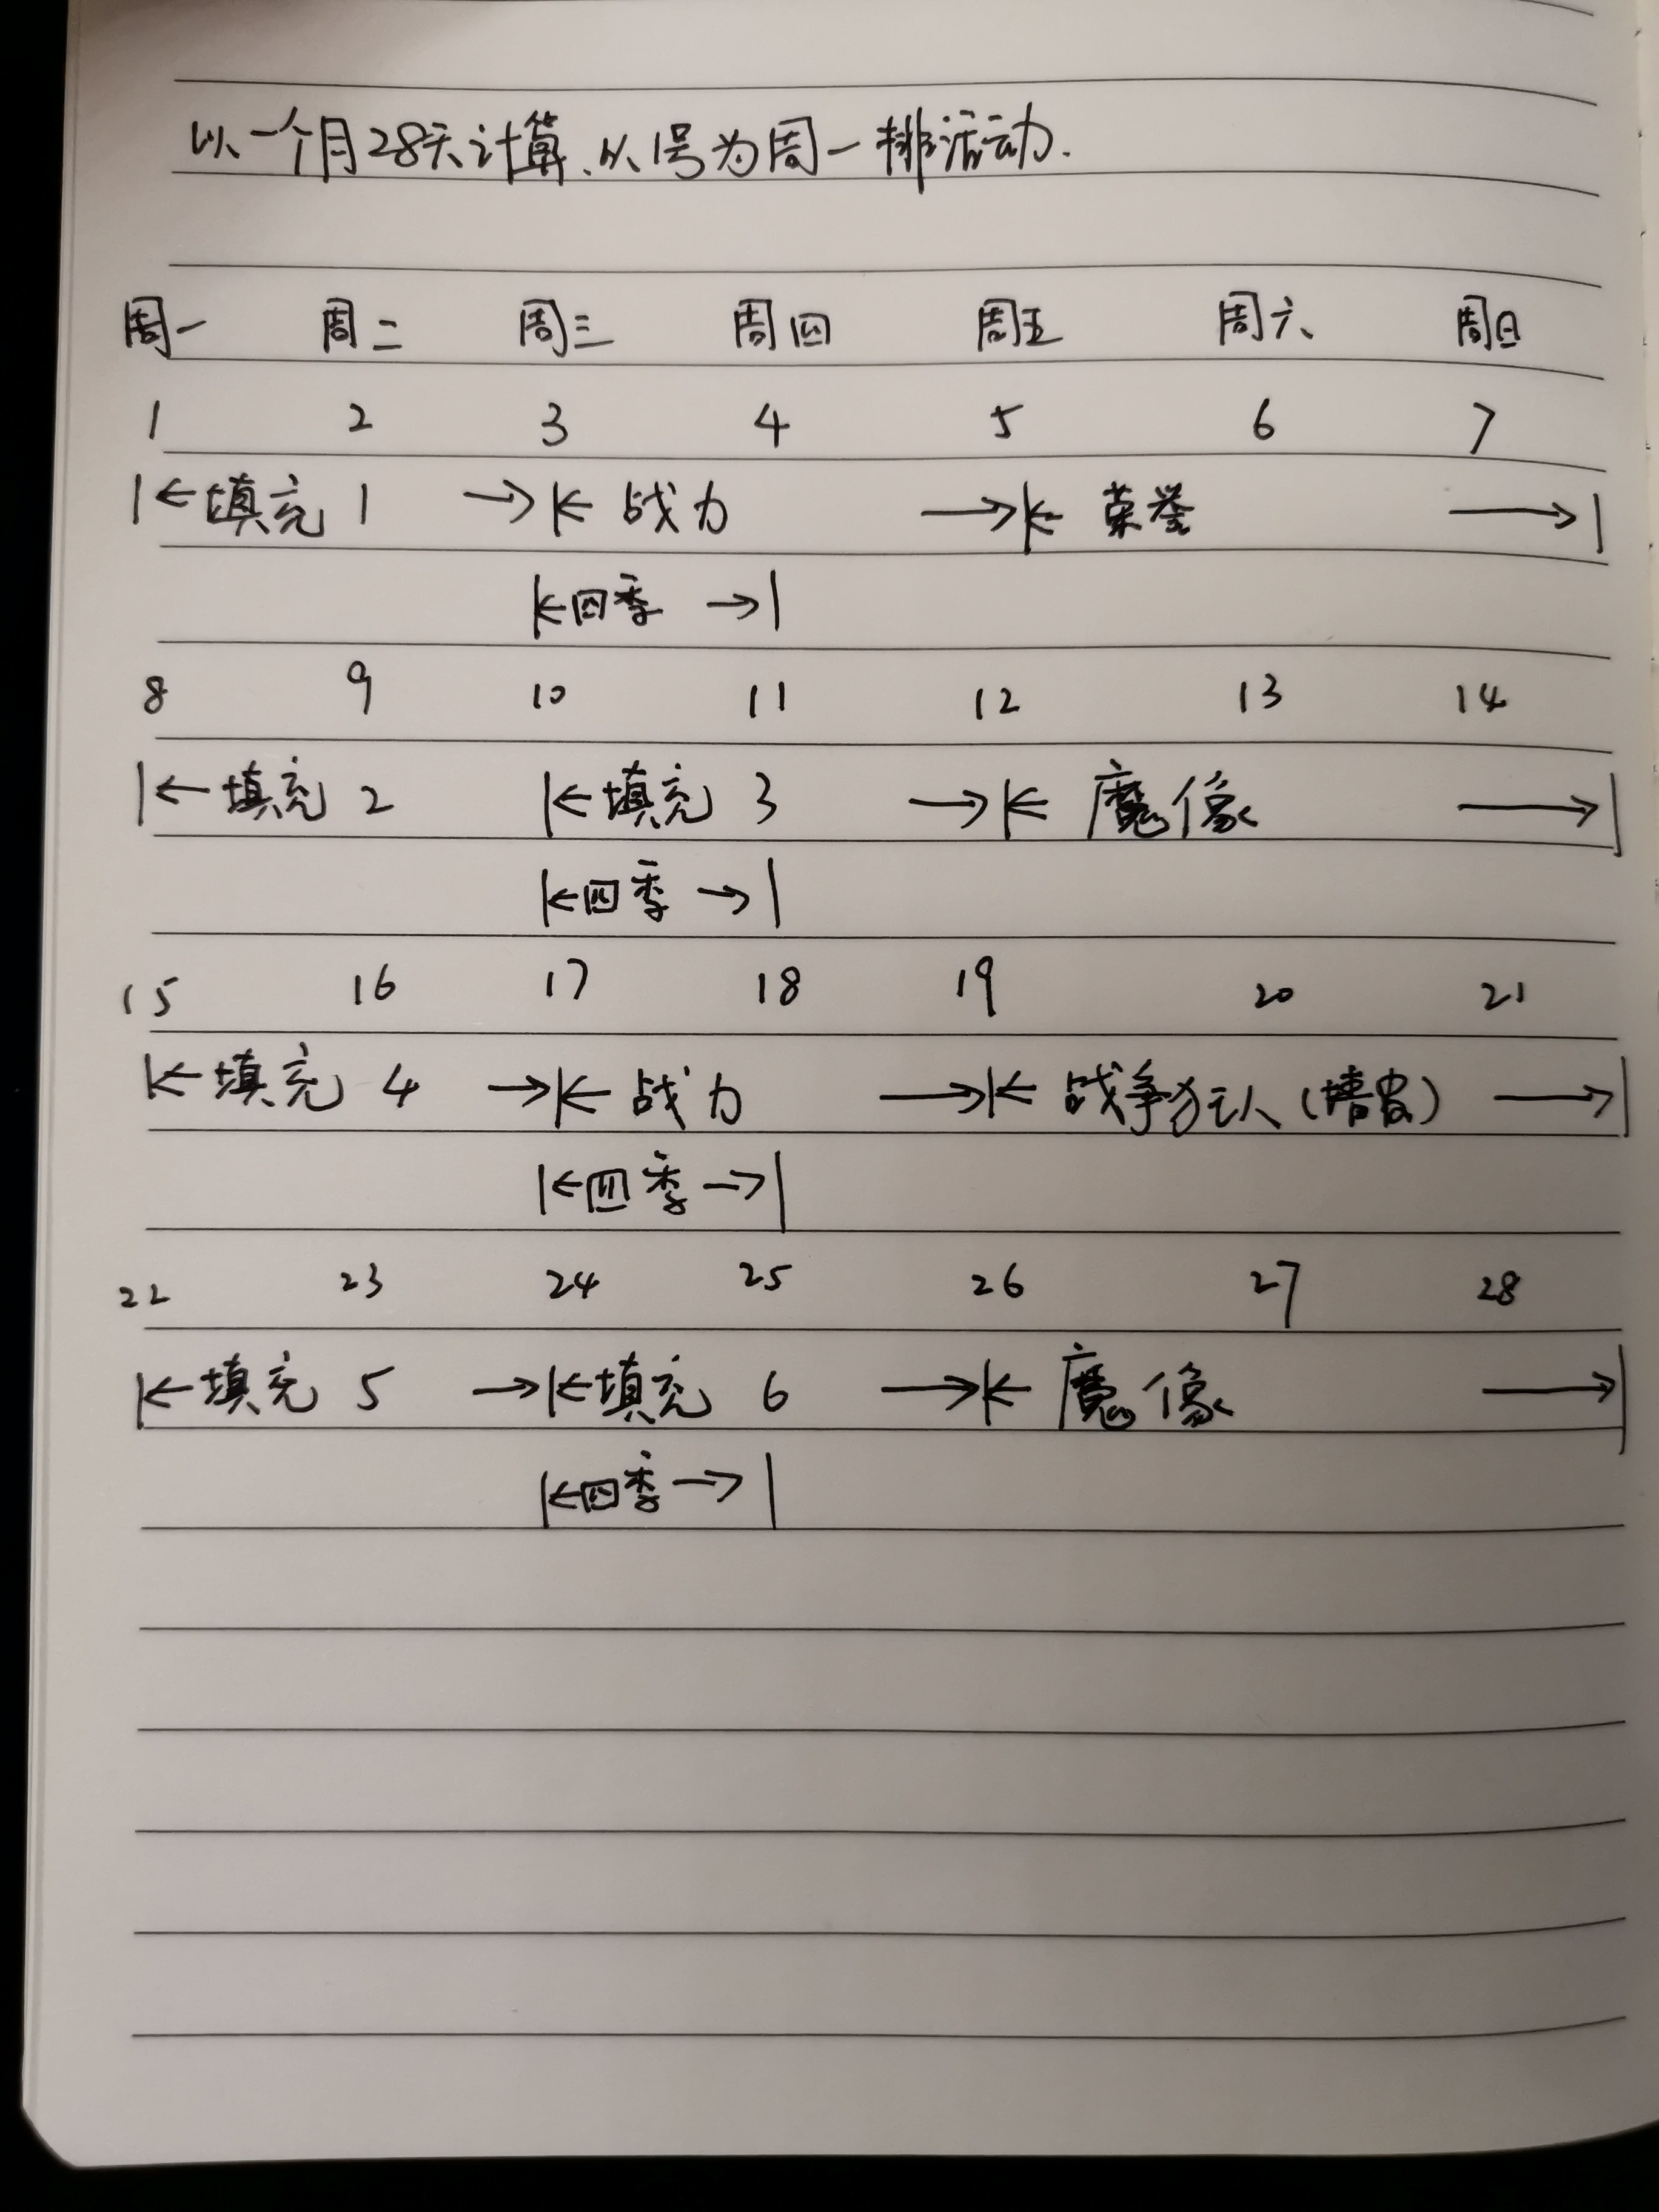 以一个月28天计算、以1号为周一排活动.
周一 周二 周三 周四 周五 周六 周日
1 2 3 4 5 6 7
|← 填充 1 →|← 战力 →|← 荣誉 →|
|←四季 →|
8 9 10 11 12 13 14
|← 填充 2 |← 填充 3 →|← 魔像 →|
|←四季 →|
15 16 17 18 19 20 21
|← 填充 4 →|← 战力 →|← 战争狂人（墙皮） →|
|←四季 →|
22 23 24 25 26 27 28
|← 填充 5 →|← 填充 6 →|← 魔像 →|
|←四季 →|